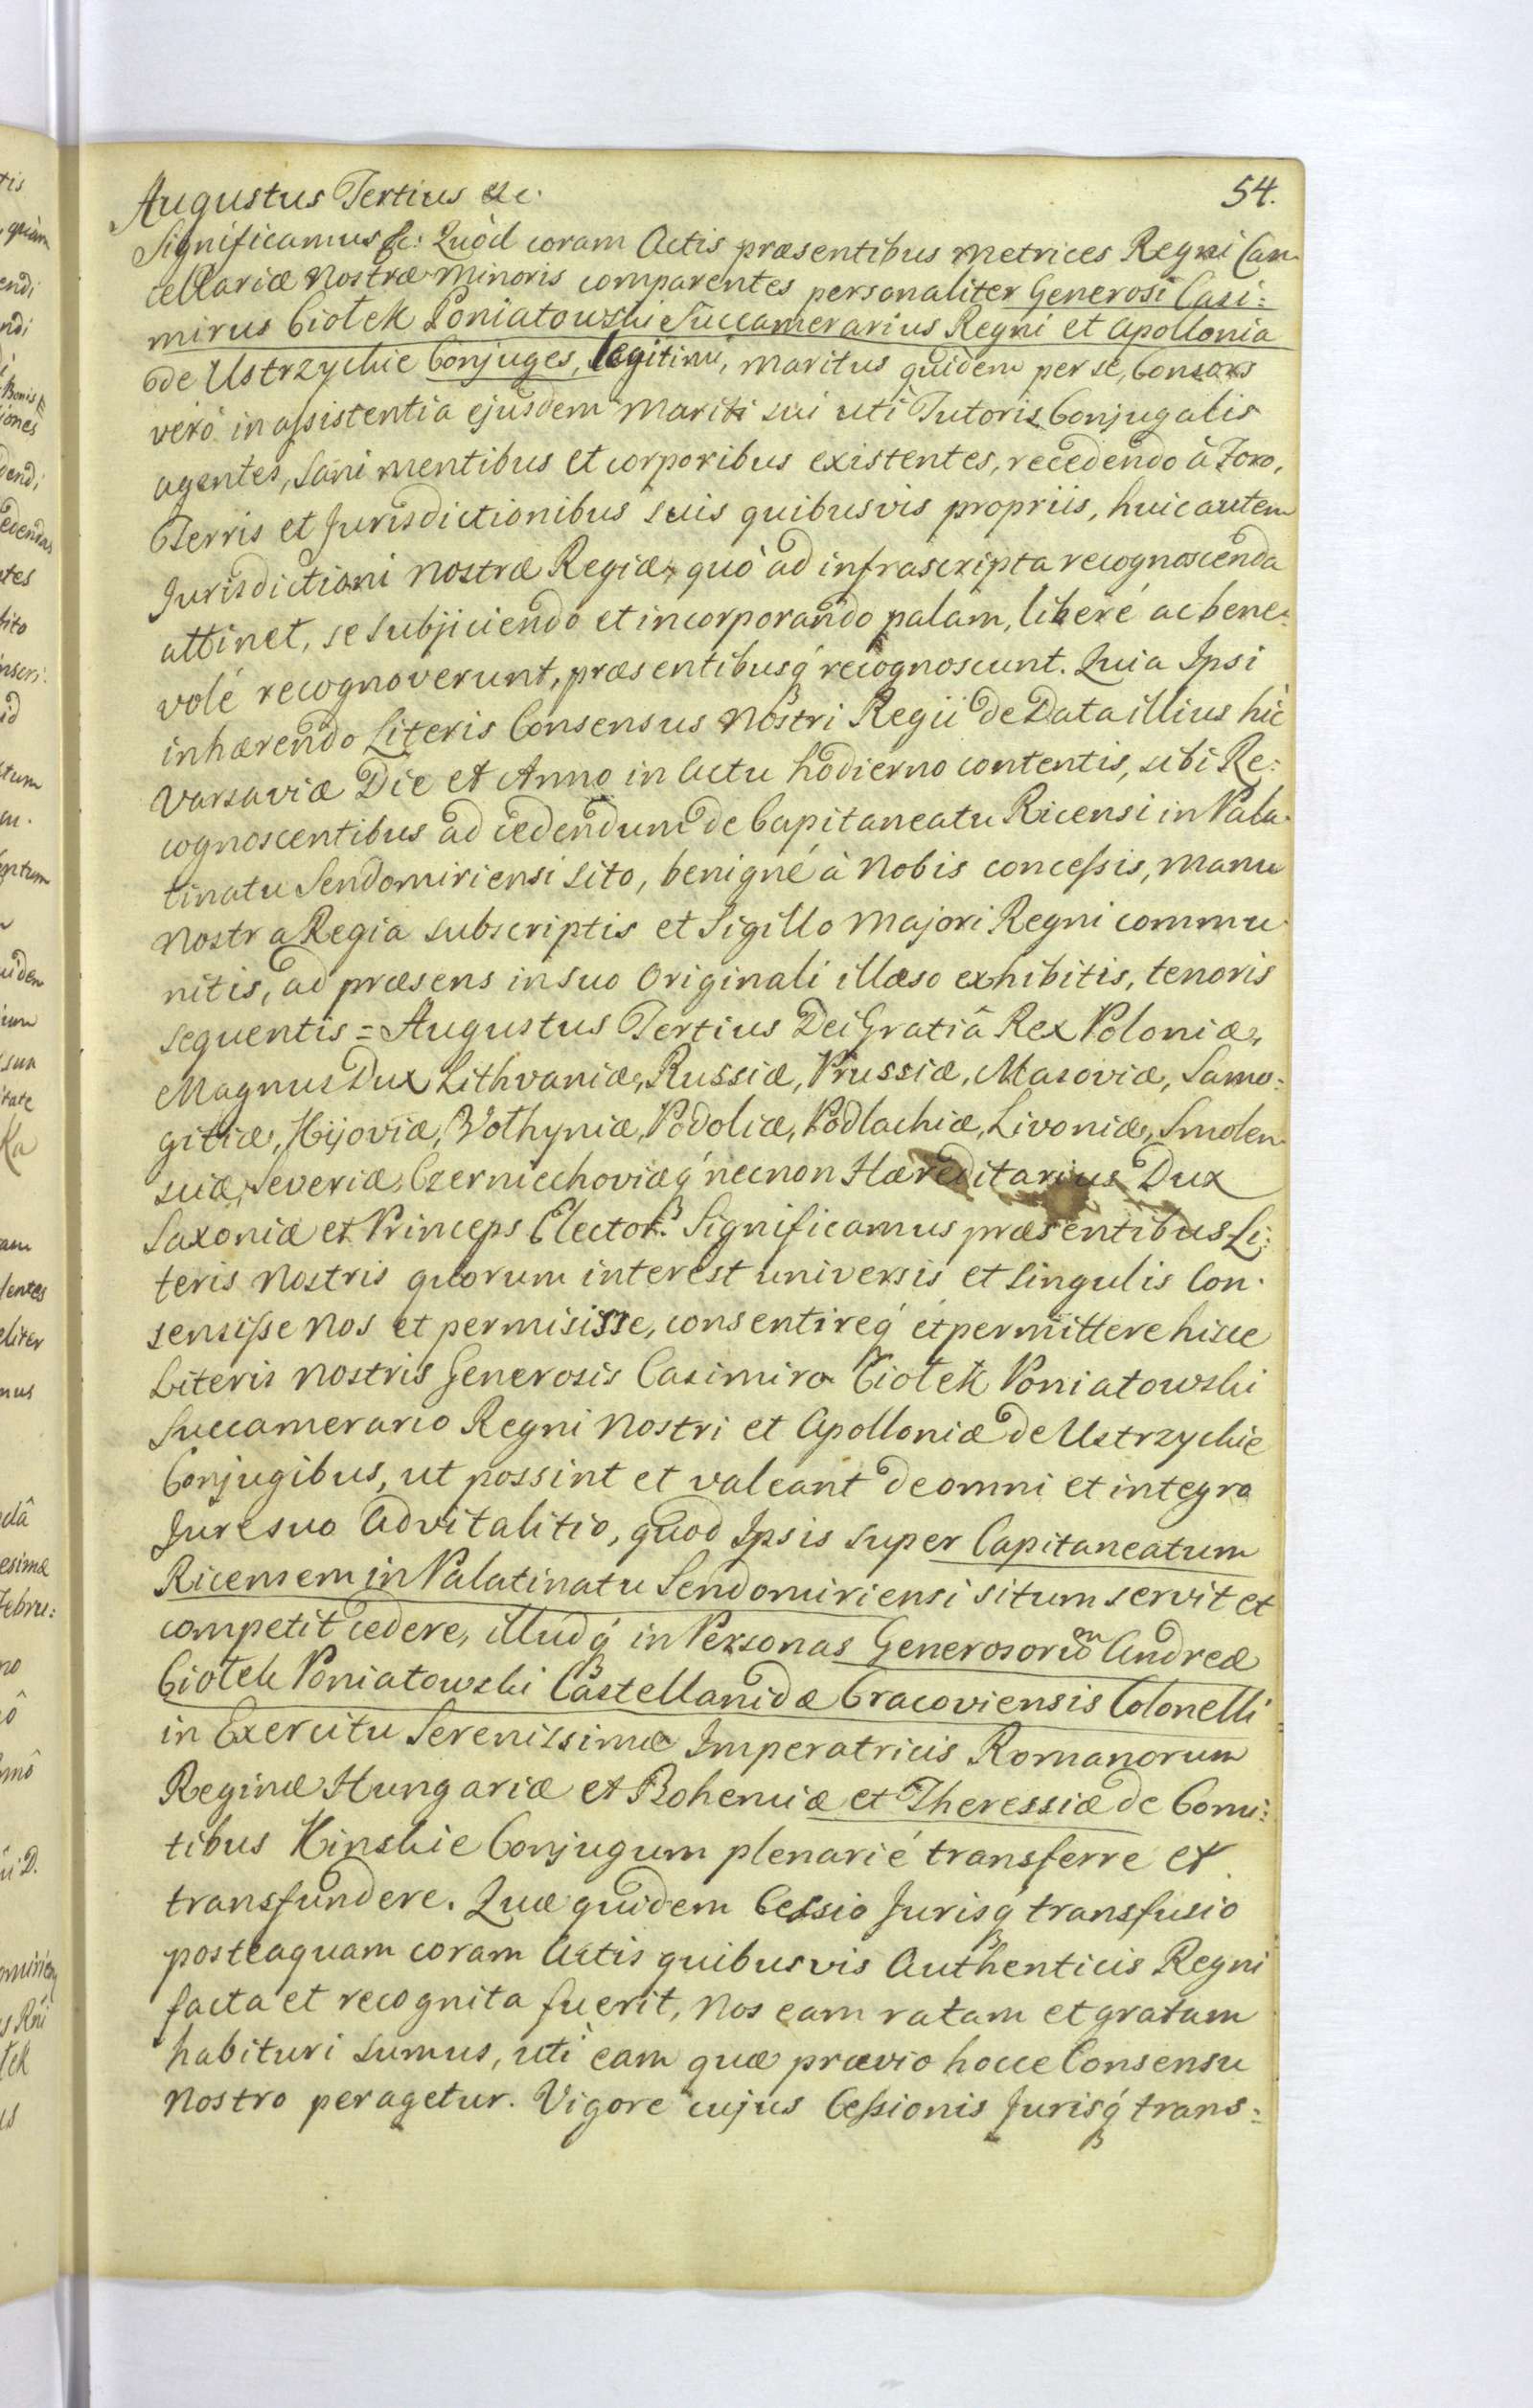 54.
Augustus Tertius &c.
Significamus &c: Quòd coram Actis præsentibus Metrices Regni Can-
cellariæ Nostræ Minoris comparentes personaliter Generosi Casi:
mirus Ciołek Poniatowski Succamerarius Regni et Apollonia
de Ustrzyckie Conjuges, legitimi, Maritus quidem per se, Consors
verò in assistentia ejusdem Mariti sui uti Tutoris Conjugalis
agentes, sani mentibus et corporibus existentes, recedendo à Foro,
Terris et Jurisdictionibus suis quibusvis propriis, huic autem
Jurisdictioni Nostræ Regiæ, quò ad infrascripta recognoscenda
attinet, se subjiciendo et incorporando palam, liberé ac bene:
volé recognoverunt, præsentibusq́ recognoscunt. Quia Ipsi
inhærendo Literis Consensus Nostri Regii de Data illius hìc
Varsaviæ Die et Anno in Actu hodierno contentis, sibi Re:
cognoscentibus ad cedendum de Capitaneatu Ricensi in Pala-
tinatu Sendomiriensi sito, benigné à Nobis concessis, Manu
Nostra Regia subscriptis et Sigillo Majori Regni commu-
nitis, ad præsens in suo Originali illæso exhibitis, tenoris
sequentis = Augustus Tertius Dei Gratiâ Rex Poloniæ,
Magnus Dux Lithvaniæ, Russiæ, Prussiæ, Masoviæ, Samo:
gitiæ, Kijoviæ, Volhyniæ, Podoliæ, Podlachiæ, Livoniæ, Smolen-
sciæ, Severiæ, Czerniechoviæq́ necnon Hæreditarius Dux
Saxoniæ et Princeps Elector. Significamus præsentibus Li:
teris Nostris quorum interest universis et singulis Con-
sensisse Nos et permisisse, consentireq́ et permittere hisce
Literis Nostris Generosis Casimiro Ciołek Poniatowski
Succamerario Regni Nostri et Apolloniæ de Ustrzyckie
Conjugibus, ut possint et valeant de omni et integro
Jure suo Advitalitio, quod Ipsis super Capitaneatum
Ricensem in Palatinatu Sendomiriensi situm servit et
competit cedere, illudq́ in Personas Generosorũm Andreæ
Ciołek Poniatowski Castellanidæ Cracoviensis Colonelli
in Exercitu Serenissimæ Imperatricis Romanorum
Reginæ Hungariæ et Bohemiæ et Theressiæ de Comi:
tibus Kinskie Conjugum plenarié transferre et
transfundere. Quæ quidem Cessio Jurisq́ transfusio
posteaquam coram Actis quibusvis Authenticis Regni
facta et recognita fuerit, Nos eam ratam et gratam
habituri sumus, uti eam quæ prævio hocce Consensu
Nostro peragetur. Vigore cujus Cessionis Jurisq́ trans: